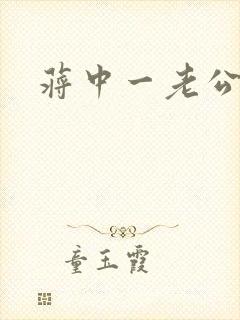 蒋中一老公
童玉霞